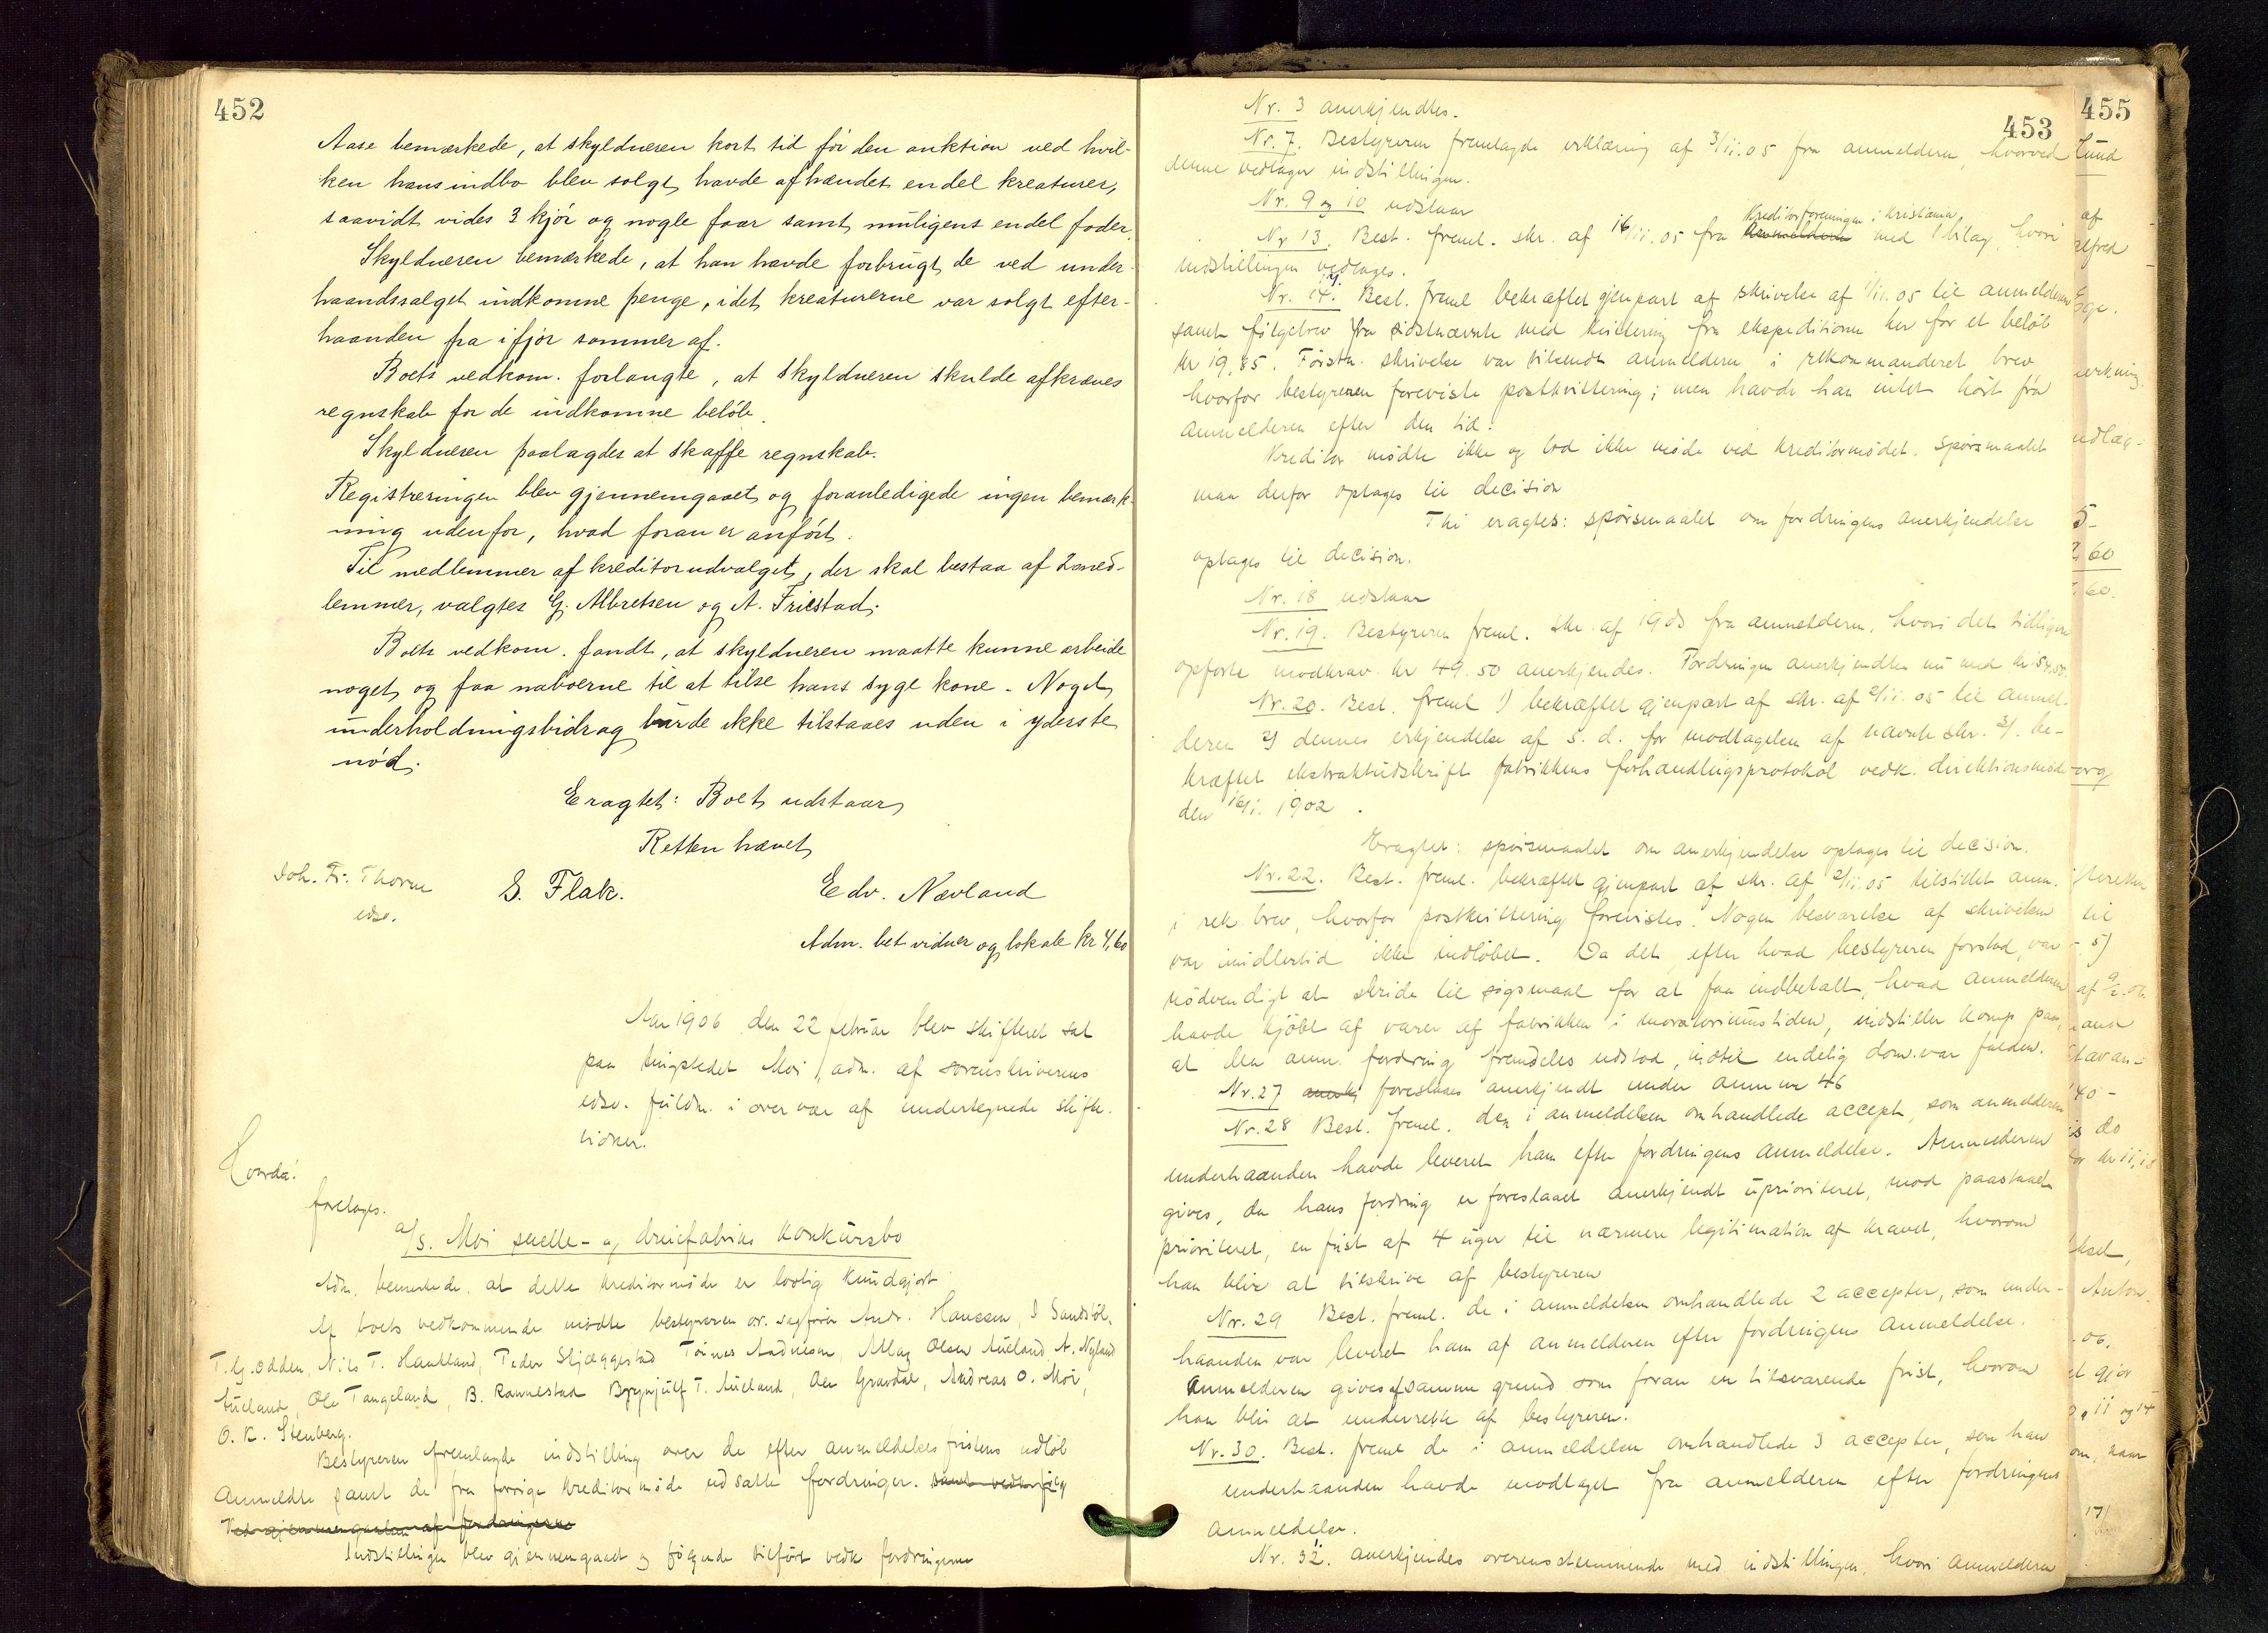 452
Aase bemærkede, at skyldneren kort tid för den auktion ved hvil-
ken hans indbo blev solgt, havde afhændet endel kreaturer,
saavidt vides 3 kjör og nogle faar samt muligens endel foder.
Skyldneren bemærkede, at han havde forbrugt de ved under-
haandssalget indkomne penge, idet kreaturerne var solgt efter-
haanden fra ifjor sommer af.
Boets vedkom. forlangte, at skyldneren skulde afkræves
regnskab for de indkomne belöb.
Skyldneren paalagdes at skaffe regnskab.
Registreringen blev gjennemgaaet og foranledigede ingen bemærk-
ning udenfor, hvad foran er anfört.
Til medlemmer af kreditorudvalget, der skal bestaa af 2 med-
lemmer, valgtes G. Albretsen og A. Friestad.
Boets vedkom. fandt, at skyldneren maatte kunne arbeide
noget og faa naboerne til at tilse hans syge kone. Noget
underholdningsbidrag burde ikke tilstaaes uden i yderste
nöd.
Eragtet: Boet udstaar
Retten hævet
Joh. Fr. Thorne S. Flak. Edv. Nævland
edsv.
Adm. bet vidner og lokale kr 4,60
Aar 1906 den 22 februar blev skifteret sat
paa tingstedet Moi, adm. af sorenskriverens
edsv. fuldm. i overvær af undertegnede skifte-
vidner.
Hvorda:
foretages.
a/s. Moi snelle- og dreiefabriks konkursbo
Adm. bemerkede at dette kreditormöde er lovlig kundgjort
Af boets vedkommende mödte bestyreren or. sagförer Andr. Hanssen, I Sandsböl.
T. G. Odden, Nils T. Haukland, Peder Skjæggestad Töines Aadnesen, Atlag Olsen Aueland, A. Nyland
Aueland, Ole Tangeland, B. Ramnestad Brynjulf T. Aueland, Ole Gravdal, Andreas O. Moi,
O. K. Stenberg.
Bestyreren fremlagde indstilling over de efter anmeldelsesfristens udlöb
anmeldte samt de fra forrige kreditormöde udsatte fordringer.
Ved gjennemgaaelsen af fordringerne
Indstillingen blev gjennemgaaet og fölgende tilfört vedk fordringerne
453
Nr. 3 anerkjendtes.
Nr. 7. Bestyreren fremlagde erklæring af 3/11.05 fra anmelderen, hvorved
denne vedtager indstillingen.
Nr. 9 og 10 udstaar
Kreditorforeningen i Kristiania
Nr 13. Best. freml. skr. af 16/11.05 fra Anmelderen med 1 bilag, hvori
indstillingen vedtages.
Nr. 14. Best. freml bekræftet gjenpart af skrivelse af 1/11.05 til anmelderen
samt fölgebrev fra sidstnævnte med kvittering fra ekspeditionen her for et belöb
kr 19,85. Förstn. skrivelse var tilsendt anmelderen i rekommanderet brev
hvorfor bestyreren foreviste postkvittering; men havde han intet hört fra
anmelderen efter den tid.
Kreditor mödte ikke og lod ikke möde ved kreditormödet. Spörsmaalet
maa derfor optages til decision
Thi eragtes: spörsmaalet om fordringens anerkjendelse
optages til decision.
Nr. 18 udstaar
Nr. 19. Bestyreren freml. skr. af 1905 fra anmelderen, hvori det tidligere
opförte modkrav kr 49.50 anerkjendes. Fordringen anerkjendtes nu med kr
Nr. 20. Best. freml 1) bekræftet gjenpart af skr. af 2/11.05 til anmel-
deren 2) dennes erkjendelse af s. d. for modtagelsen af nævnte skr. 3). be-
kræftet ekstraktudskrift fabrikkens forhandlingsprotokol vedk. direktionsmöde
den 16/1. 1902.
Eragtet: spörsmaalet om anerkjendelse optages til decision.
Nr. 22. Best. freml. bekræftet gjenpart af skr. af 2/11.05 tilstillet anm.
i rek. brev, hvorfor postkvittering forevistes. Nogen besvarelse af skrivelsen
var imidlertid ikke indlöbet. Da det, efter hvad bestyreren forstod, var
nödvendigt at skride til sögsmaal for at faa indbetalt, hvad anmelderen
havde kjöbt af varer af fabrikken i moratoriumstiden, indstiller komp paa,
at den anm. fordring fremdeles udstod, indtil endelig dom var falden.
Nr. 27 anerkj foreslaaes anerkjendt under anm nr 46
Nr. 28 Best. freml. den i anmeldelsen omhandlede accept, som anmelderen
underhaanden havde leveret ham efter fordringens anmeldelse. Anmelderen
gives, da hans fordring er foreslaaet anerkjendt uprioriteret, mod paastaaet
prioriteret, en frist af 4 uger til nærmere legitimation af kravet, hvorom
han blir at tilskrive af bestyreren
Nr. 29 Best. freml. de i anmeldelsen omhandlede 2 accepter, som under-
haanden var leveret ham af anmelderen efter fordringens anmeldelse.
Anmelderen gives af samme grund som foran en tilsvarende frist, hvorom
han blir at underrette af bestyreren.
Nr. 30. Best. freml de i anmeldelsen omhandlede 3 accepter, som han
underhaanden havde modtaget fra anmelderen efter fordringens
anmeldelse.
Nr. 32. anerkjendes overensstemmende med indstillingen, hvori anmelderen
455
Lund
af
5-
60
60.
til
5)
40-
is do
Anton.
06.
et gjör
11 og 14
om, naar
17/